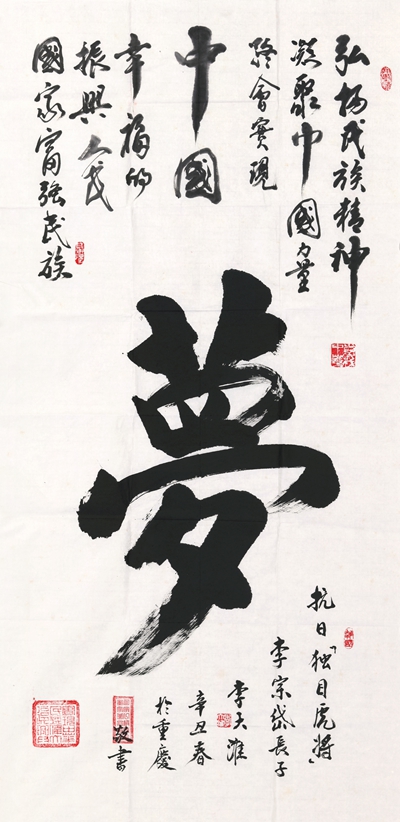 弘扬民族精神
凝聚中國力量
終會實現
國家富强民族
振興人民
幸福的
中國
夢
抗日「独目虎將」
李宗岱長子
李天淮
辛丑春
於重慶
敬書